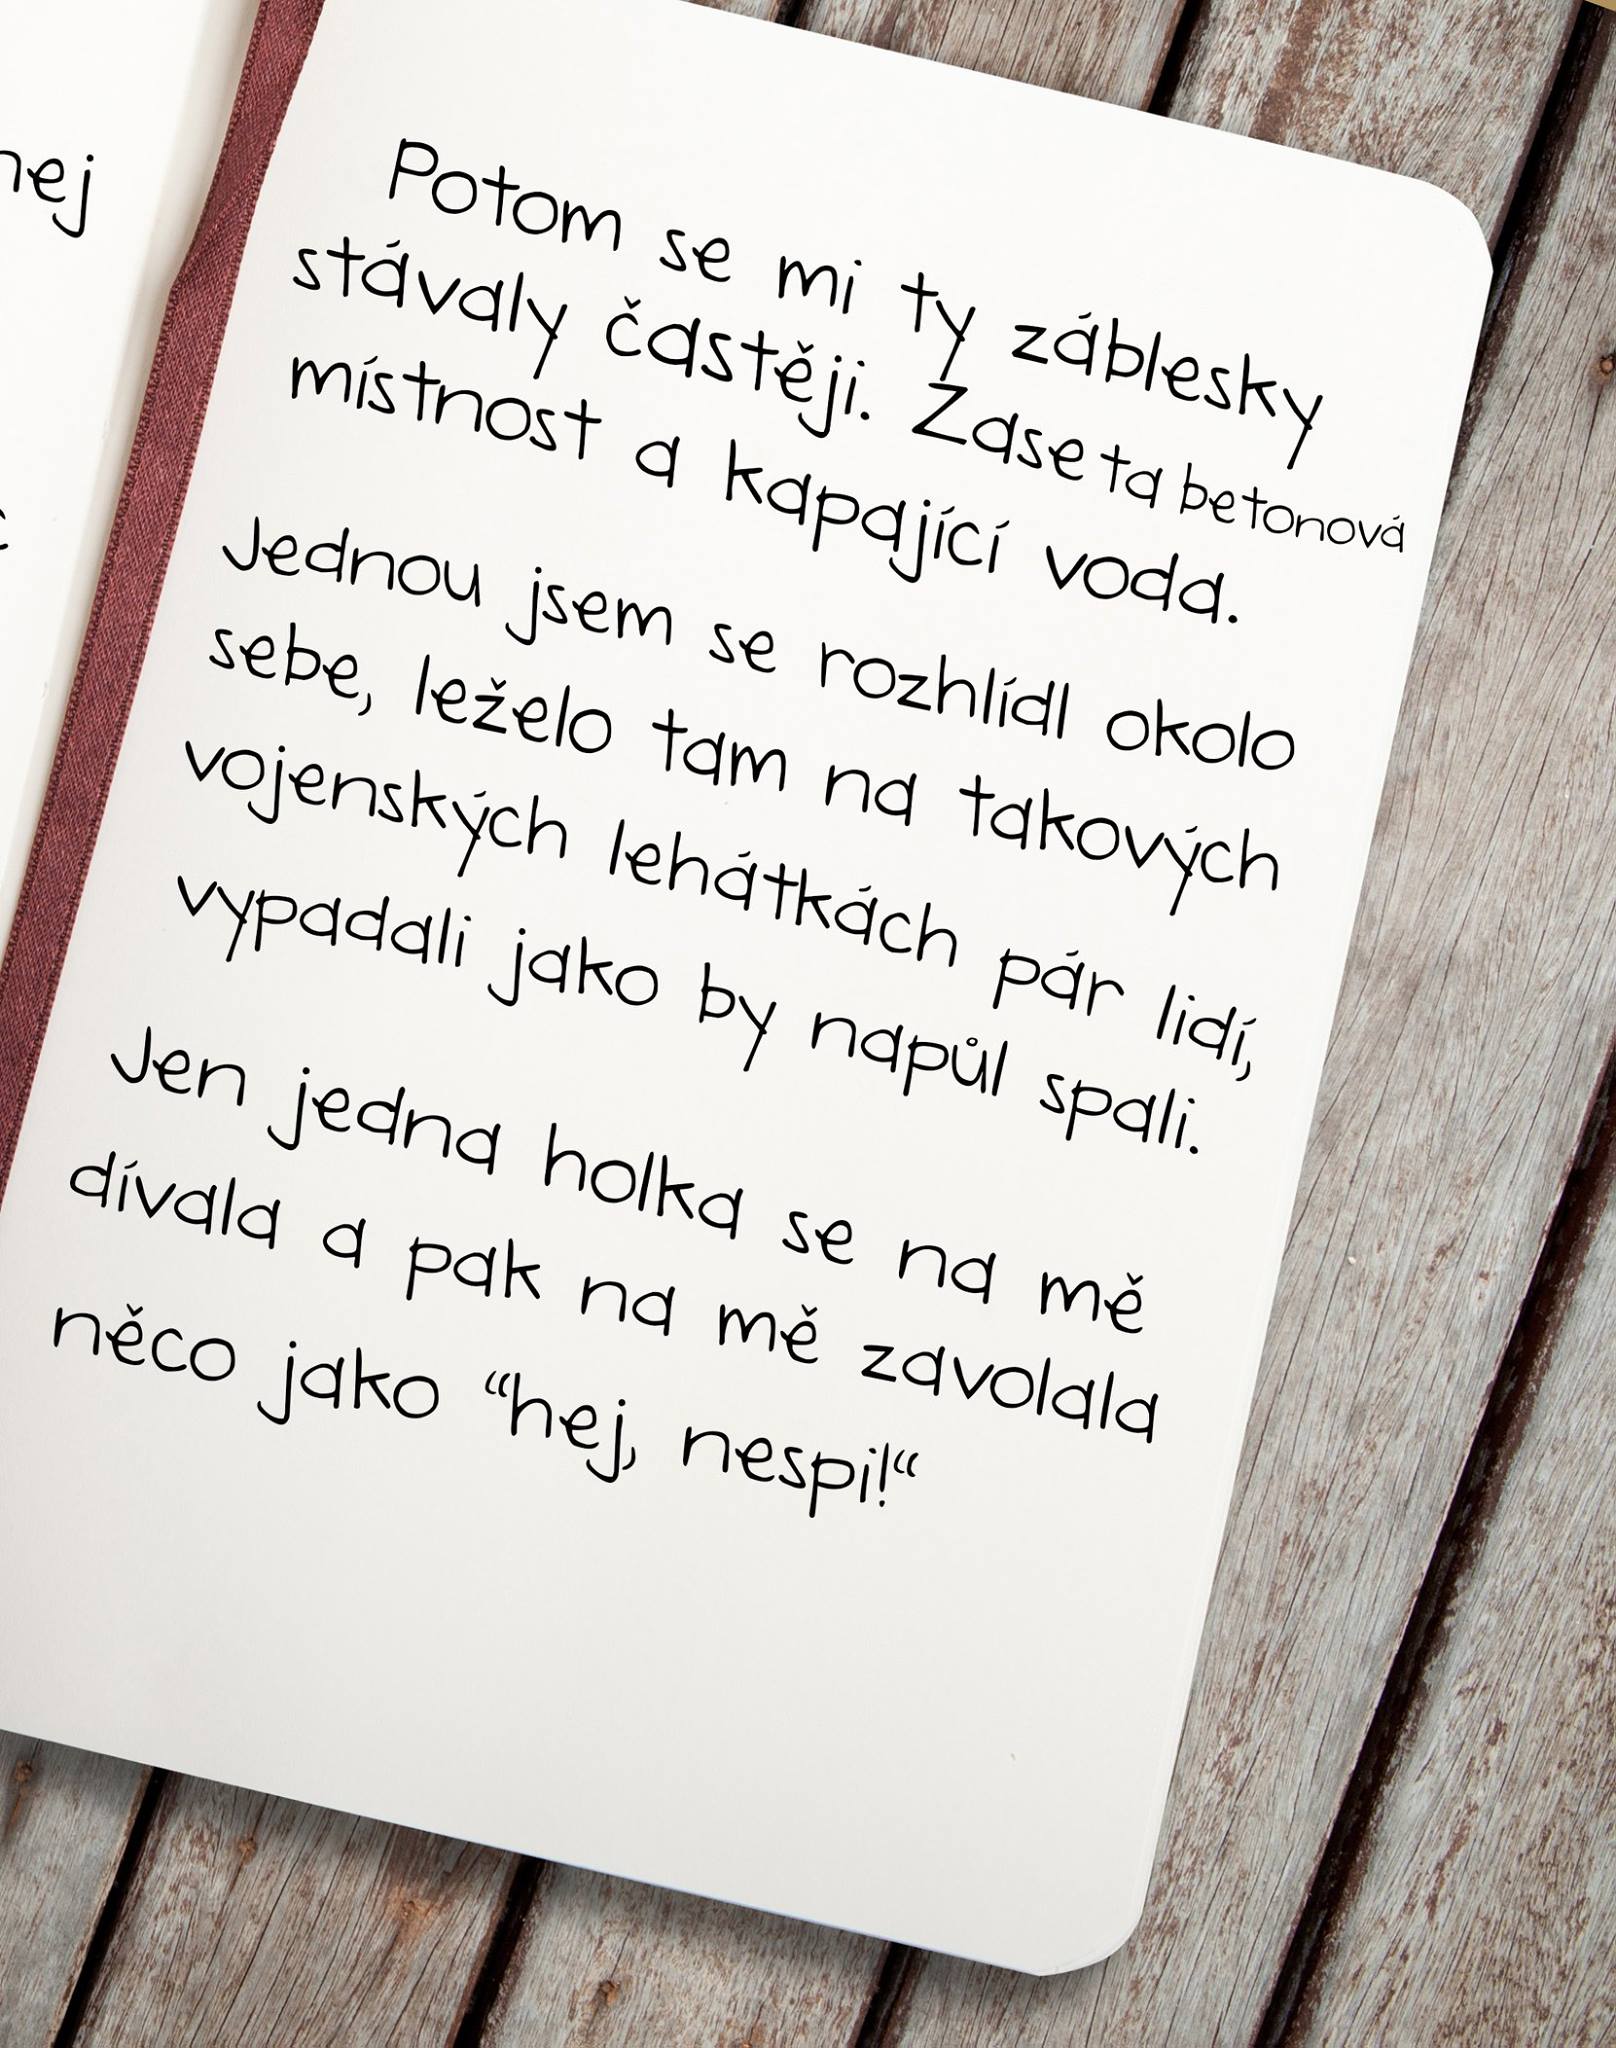 nej
Potom se mi ty záblesky
stávaly častěji. Zase ta betonová
místnost a kapající voda.
Jednou jsem se rozhlídl okolo
sebe, leželo tam na takových
vojenských lehátkách pár lidí,
vypadali jako by napůl spali.
Jen jedna holka se na mě
dívala a pak na mě zavolala
něco jako “hej, nespi!“